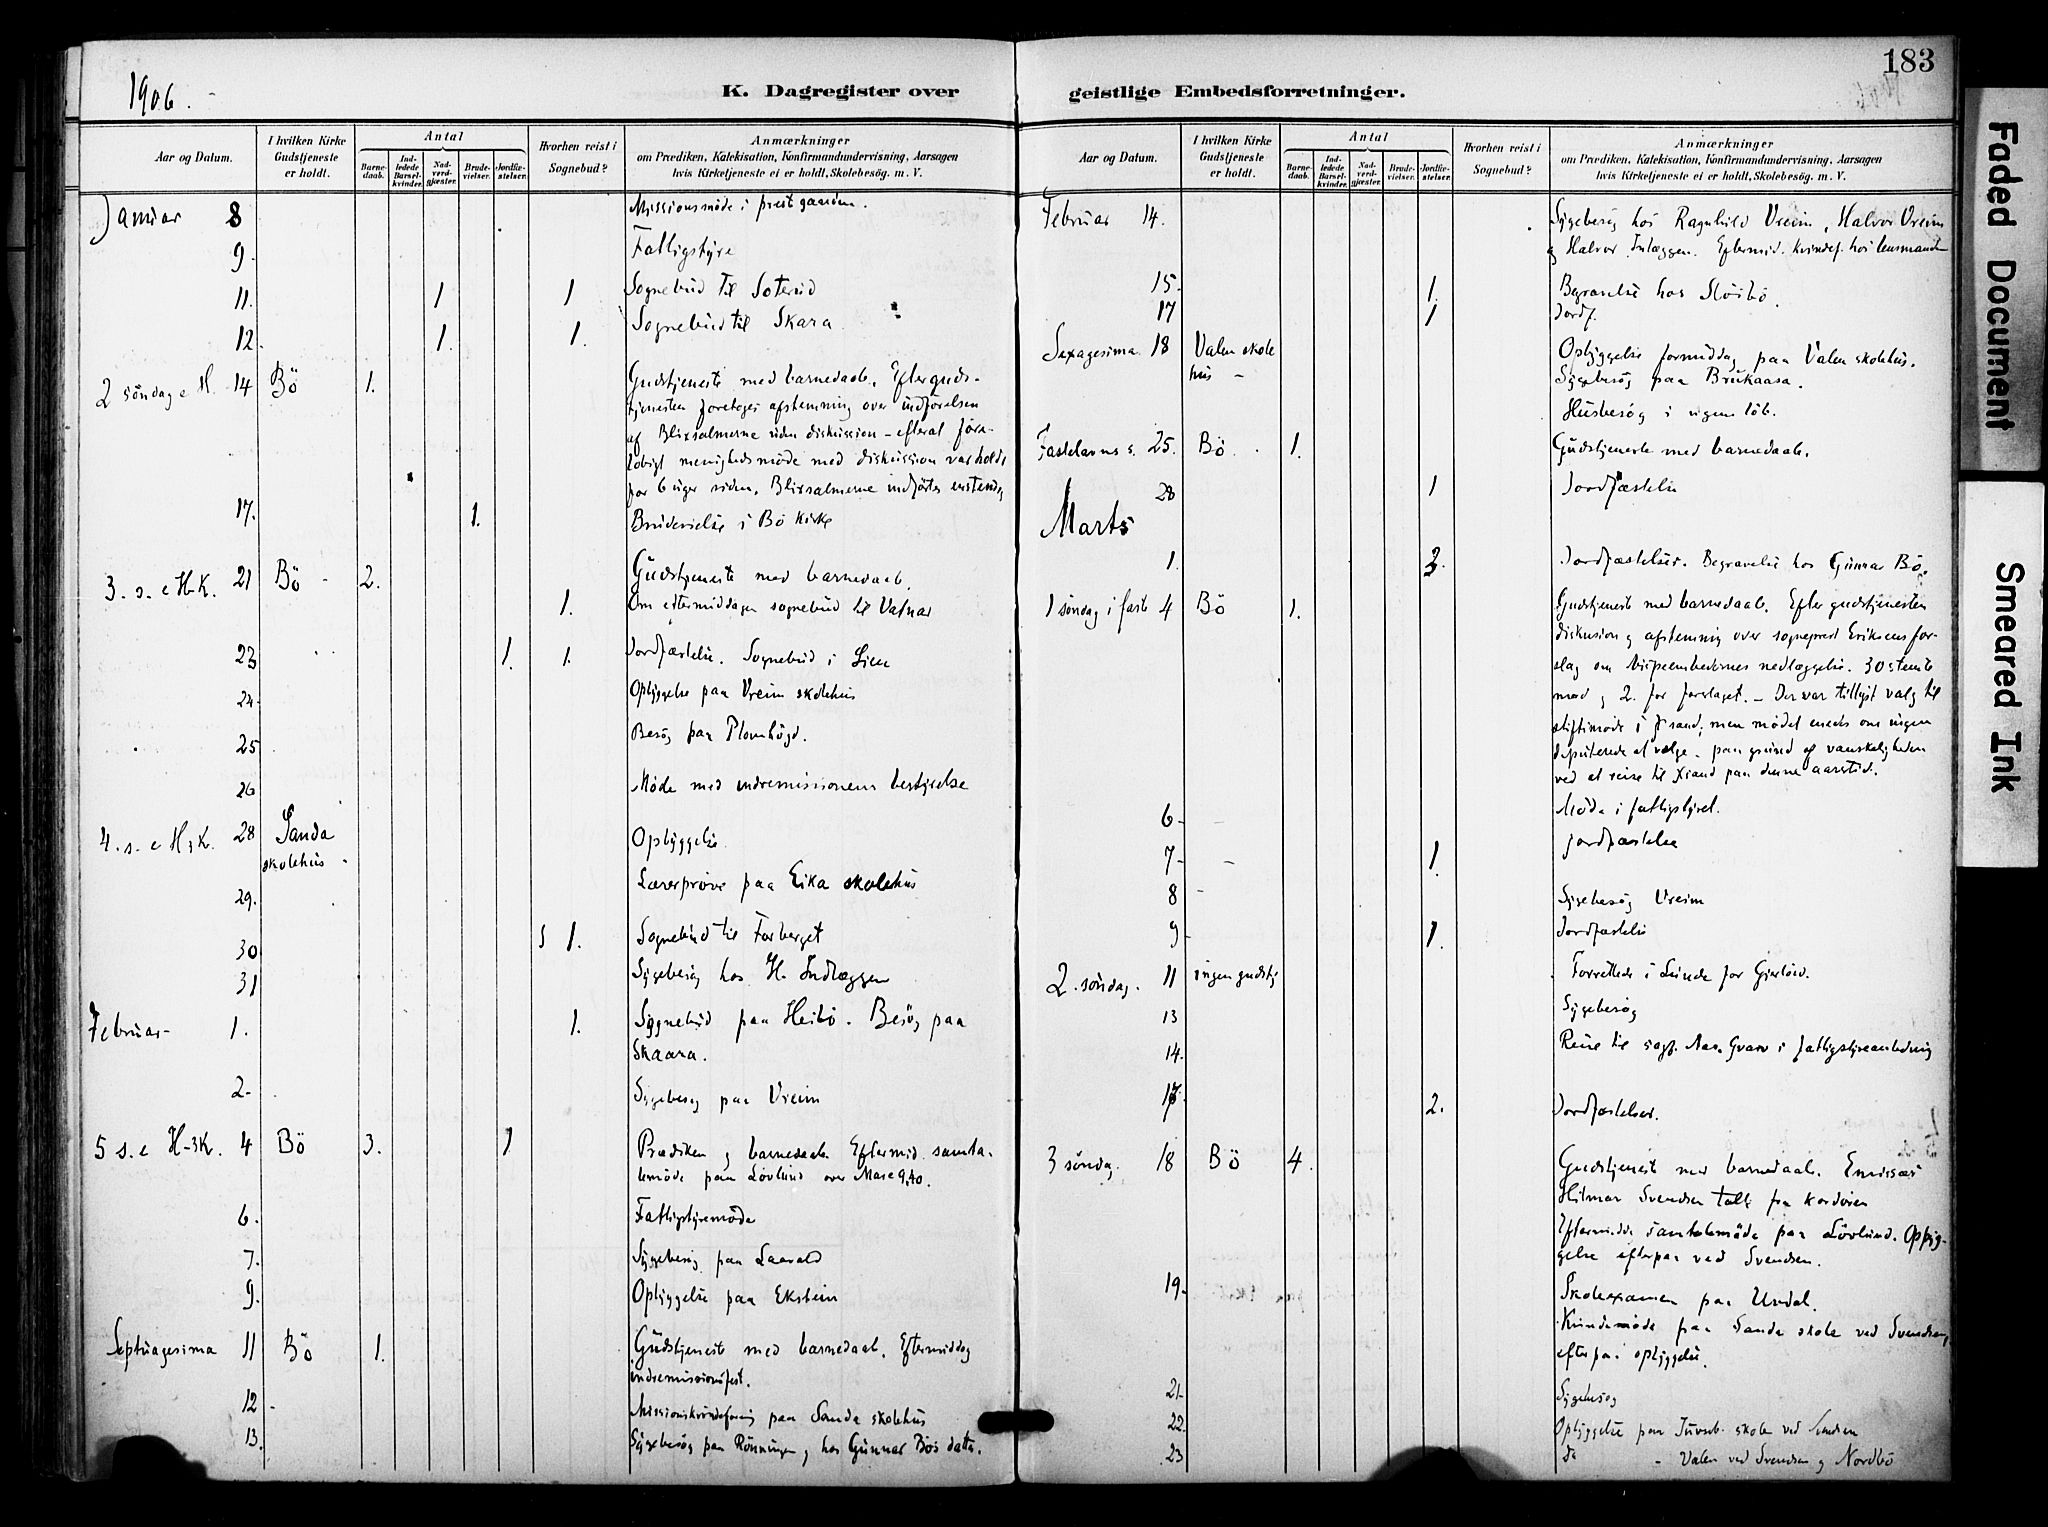 183
1906.
K. Dagregister over
geistlige Embedsforretninger.
Aar og Datum.
I hvilken Kirke Gudstjeneste er holdt.
Antal
Barnedaab.
Indledede Barselkvinder.
Nadverdgjester.
Brudevielser.
Jordfæstelser.
Hvorhen reist i Sognebud?
Anmærkninger
om Prædiken, Katekisation, Konfirmandundervisning, Aarsagen
hvis Kirketjeneste ei er holdt, Skolebesøg. m. V.
Januar 8 Missionsmöde i prestgaarden.
9. Fattigstyre
11. 1 1 Sognebud til Soterud
12. 1. 1. Sognebud til Skara
2 söndag e H. 14 Bö 1. Gudstjeneste med barnedaab. Efter guds-
tjenesten foretoges afstemning over indförelsen
af Blixsalmerne uden diskussion - efterat fore-
löbigt menighedsmöde med diskussion var holdt
for 6 uger siden. Blixsalmerne indförtes enstemmig
17. 1. Brudevielse i Bö kirke
3. s. e H.K. 21 Bö - 2. Gudstjeneste med barnedaab.
1. Om eftermiddagen sognebud til Vatnar
23 1. 1. Jordfæstelse. Sognebud i Lien
24. Opbyggelse paa Vreim skolehus
25 Besög paa Plomhögd.
26 Möde med indremissionens bestyrelse
4. s. e H3K. 28 Sanda Opbyggelse
skolehus
29. Lærerpröve paa Eika skolehus
30 1. Sognebud til Forberget
31 Sygebesög hos H. Indlæggen
Februar - 1. 1. Sognebud paa Heibö. Besög paa
Skaara.
2. Sygebesög paa Vreim
5 s. e H-3K. 4 Bö 3. 1 Prædiken og barnedaab. Eftermid. samta-
lemöde paa Lövlund over Marc 9,40.
6. Fattigstyremöde
7. Sygebesög paa Laavald
9. Opbyggelse paa Ekstein
Septuagesima 11 Bö 1. Gudstjeneste med barnedaab. Eftermiddag
indremissionsfest.
12 Missionskvindeforening paa Sanda skolehus
13. Sygebesög paa Rönningen og hos Gunnar Bös datter.
Aar og Datum.
I hvilken Kirke Gudstjeneste er holdt.
Antal
Barnedaab.
Indledede Barselkvinder.
Nadverdgjester.
Brudevielser.
Jordfæstelser.
Hvorhen reist i Sognebud?
Anmærkninger
om Prædiken, Katekisation, Konfirmandundervisning, Aarsagen
hvis Kirketjeneste ei er holdt, Skolebesøg. m. V.
Februar 14. Sygebesög hos Ragnhild Vreim, Halvor Vreim
og Halvor Inlæggen. Eftermid. kvindef. hos lensmanden
15. 1. Begravelse hos Slöibö.
17 1 Jordf.
Sexagesima 18 Valen skole Opbyggelse formiddag paa Valen skolehus.
hus - Sygebesög paa Brukaasa.
Husbesög i ugens löb.
Fastelavns s. 25. Bö 1. Gudstjeneste med barnedaab.
28 1 Jordfæstelse
Marts
1. 3. Jordfæstelser. Begravelse hos Gunnar Bö.
1 söndag i faste 4 Bö 1. Gudstjeneste med barnedaab. Efter gudstjenesten
diskusion og afstemning over sogneprest Eriksens for-
slag om bispeembedernes nedlæggelse. 30 stemte
mod og 2. for forslaget. - Der var tillyst valg til
stiftsmöde i Xsand; men mödet enedes om ingen
deputerede at vælge - paa grund af vanskeligheden
ved at reise til Xsand paa denne aarstid.
6 - Möde i fattigstyret.
7 - 1. Jordfæstelse
8 - Sygebesög Vreim
9 - 1. Jordfæstelse
2. söndag. 11 ingen gudstj Forrettede i Lunde for Gjerlöw.
13 Sygebesög
14. Reise til sagf. Aas. Gvarv i fattigstyreanledning
17. 2. Jordfæstelser.
3 söndag. 18 Bö 4. Gudstjeneste med barnedaab. Emissær
Hilmar Svendsen talte fra kordören
Eftermidd. samtalemöde paa Lövlund. Opbyg-
gelse efterpaa ved Svendsen.
19. Skoleexamen paa Uvdal.
Kvindemöde paa Sanda skole ved Svendsen,
efterpaa opbyggelse.
21- Sygebesög
22. Opbyggelse paa skole ved Svendsen
23 do - Valen ved Svendsen og Nordbö
Faded Document
Smeared Ink